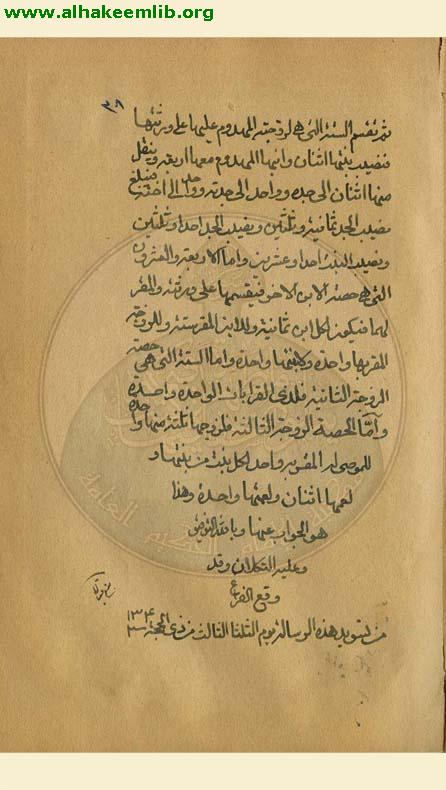 www.alhakeemlib.org
٣٨
ثم تقسم الستة التي هي لزوجته المهدوم عليها على ورثتها
فنصيب بنتها اثنان وابنها المهدوم معها اربعة وينتقل
منها اثنان الى جده وواحد الى جدته وواحد الى اخته فيبلغ
نصيب الجد ثمانية وثلثين ونصيب الجدة احدا وثلثين
ونصيب البنت احدا وعشرين واما الاربعة والعشرون
التي هي حصة الابن الاخر فيقسمها على ورثته والمقر
لهما فيكون لكل ابن ثمانية وللابن المقر ستة وللزوجة
المقر بها واحدة ولابنتها واحدة واما الستة التي هي حصة
الزوجة الثانية فلذى القرابات الواحدة واحدة
واما الحصة الزوجة الثالثة فلزوجها ثلثة منها واحدة
للموصى له المقر به واحد لكل بنت من بنتيها و
لعمها اثنان ولعمتها واحدة وهذا
هو الجواب عنها وبالله التوفيق
وعليه التكلان وقد
وقع الفراغ
من تسويد هذه الرسالة يوم الثلثا الثالث من ذي الحجة ١٣٠٤